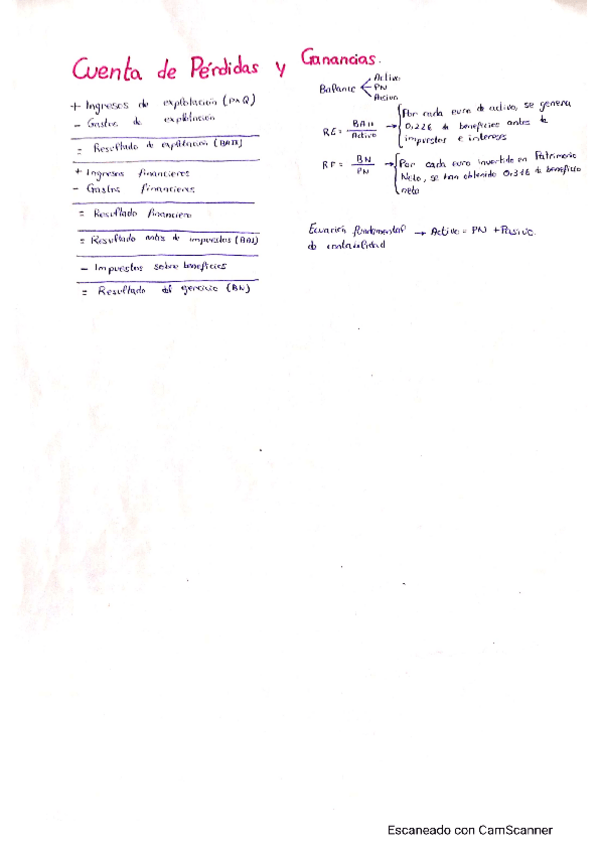 Cuenta de Pérdidas y Ganancias.
+ Ingresos de explotación (P×Q)
- Gastos de explotación
= Resultado de explotación (BAII)
+ Ingresos financieros
- Gastos financieros
= Resultado financiero
= Resultado antes de impuestos (BAI)
- Impuestos sobre beneficios
= Resultado del ejercicio (BN)
Balance
Activo
PN
RE = BAII / Activo → Por cada euro de activo, se genera
0,22€ de beneficios antes de
impuestos e intereses
RF = BN / PN → Por cada euro invertido en Patrimonio
Neto, se han obtenido 0,31€ de beneficio
neto
Ecuación fundamental → Activo = PN + Pasivo.
de contabilidad
Escaneado con CamScanner